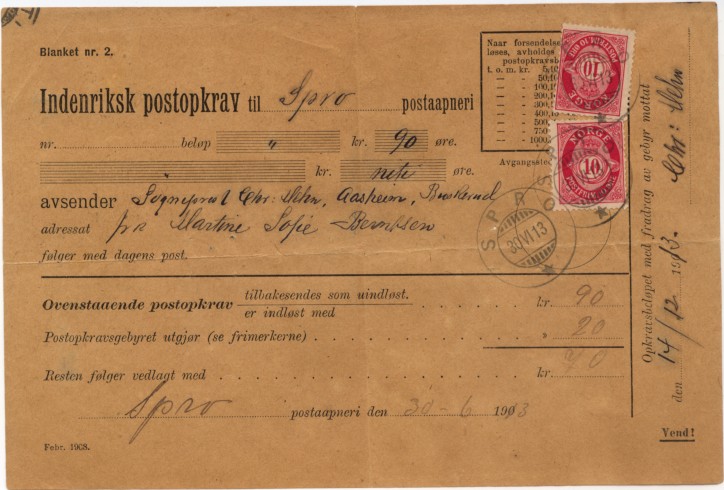 Blanket nr. 2.
Indenriksk postopkrav til Spro postaapneri
nr. beløp " kr. 90 øre.
kr. niti øre.
avsender Sogneprest Chr: Hehn, Aasheim, Buskerud
adressat frk Martine Sofie Berntsen
følger med dagens post.
Naar forsendelse
løses, avholdes
postopkravsb
t. o. m. kr. 5,
" " " 50,
" " " 100,
" " " 200,
" " " 300,
" " " 400,
" " " 500,
" " " 750
" " " 1000
Avgangssted
10
NORGE
NORGE
10
POSTFRIM
SPRO
SPRO
30 VI 13
Ovenstaaende postopkrav tilbakesendes som uindløst. kr. 90
er indløst med
Postopkravsgebyret utgjør (se frimerkerne) 20
Resten følger vedlagt med kr. 70
Spro postaapneri den 30-6 1913
Febr. 1908.
Vend!
Opkravsbeløpet med fradrag av gebyr mottat
den 14/12 1913. Chr: Hehn